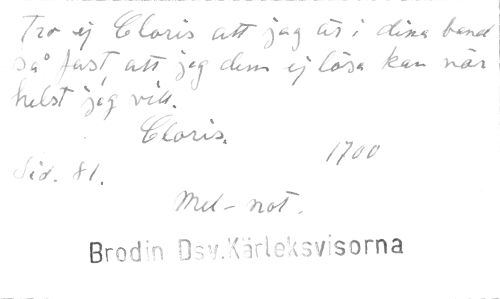 Tro ej Cloris att jag är i dina band
så fast, att jag dem ej lösa kan när
helst jag vill.
Cloris.
1700
Sid. 81.
Mel-not.
Brodin Dsv.Kärleksvisorna